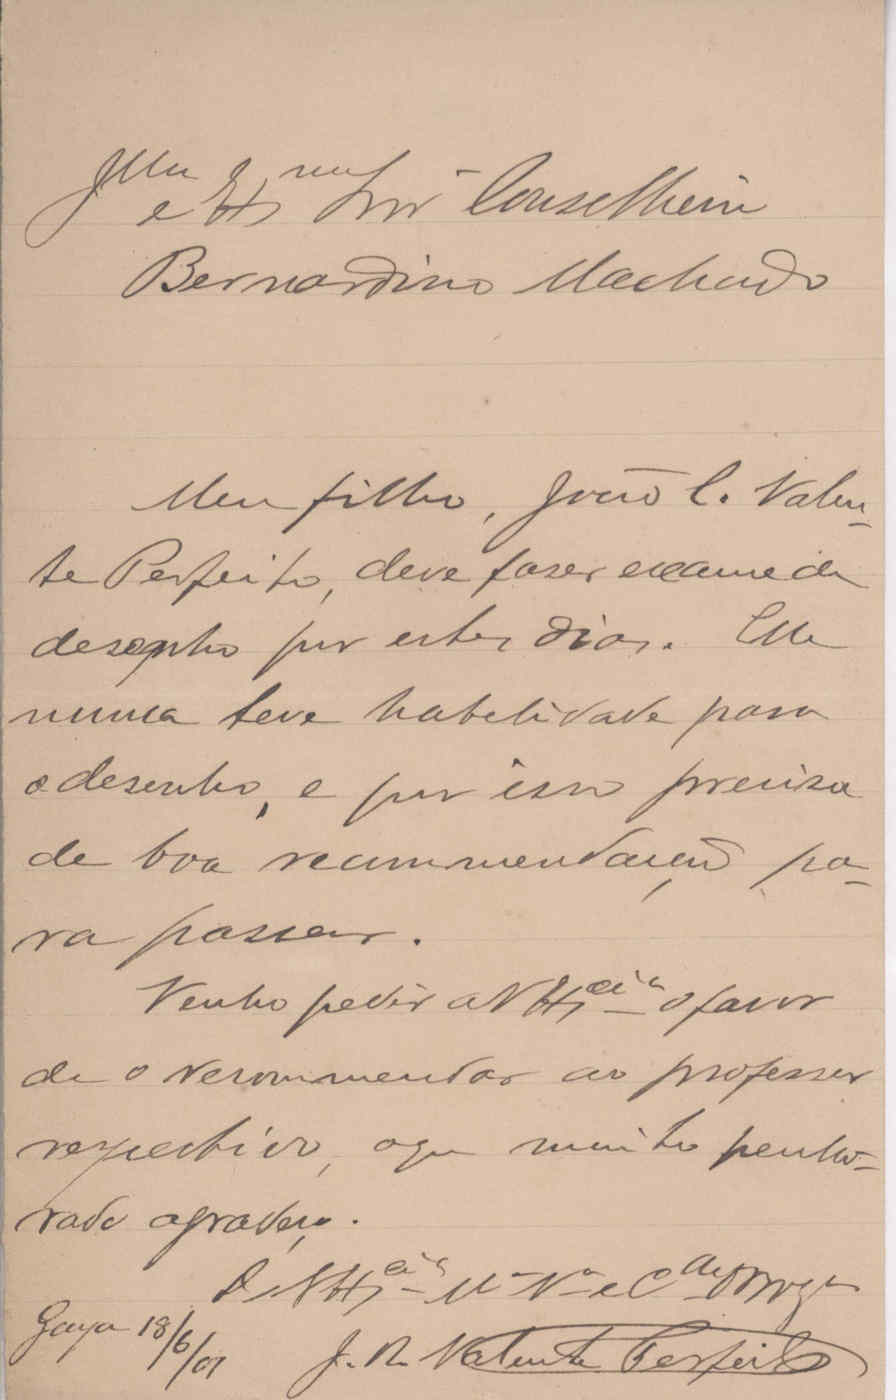 Illm
e Ex mo Snr Conselheiro
Bernardino Machado
Meu filho, João C. Valen-
te Perfeito, deve faser exame de
desenho por estes dias. Elle
nunca teve habelidade para
o desenho, e por isso precisa
de boa recommendação pa-
ra passar.
Venho pedir a V Ex cia o favor
de o recommendar ao professor
respectivo, o que muito penho-
rado agradeço.
De V Ex cia Mo Vor e C do Obrigo
Gaya 18/6/01
J. R. Valente Perfeito